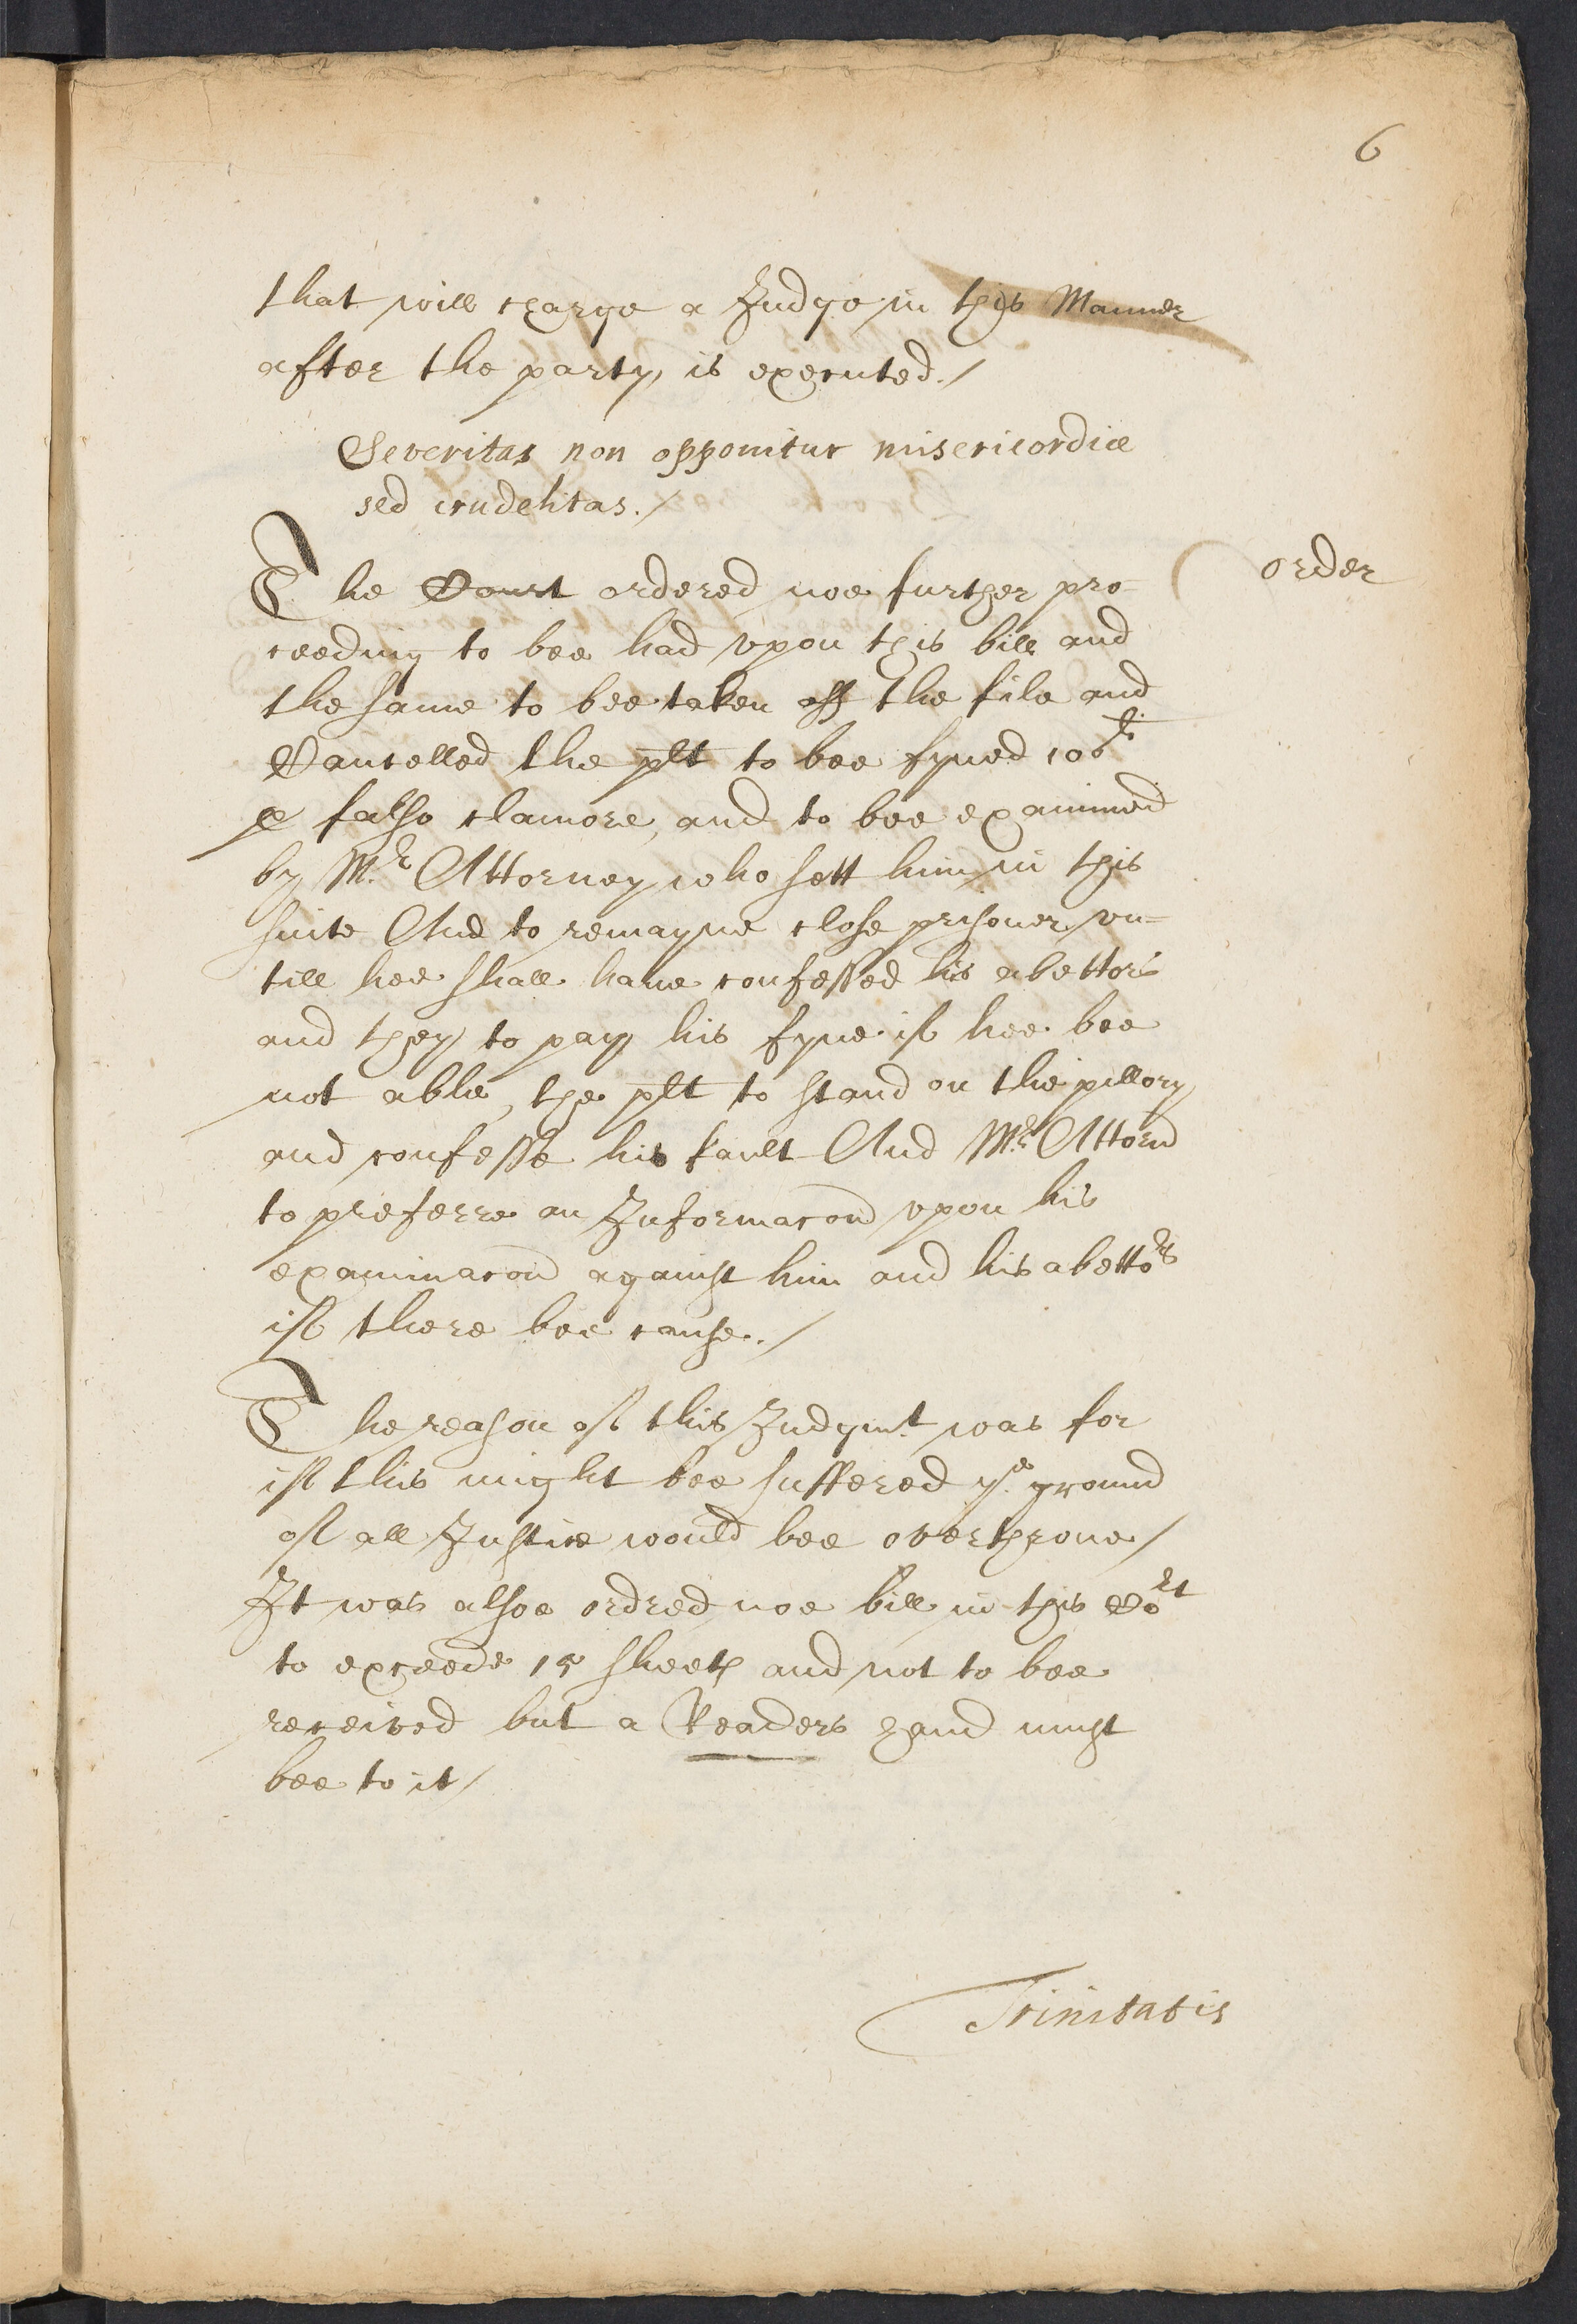 6
that will charge a Judge in this Manner
after the party is executed./
Severitas non opponitur misericordiæ
sed crudelitas./
The Court ordered noe further pro-
order
ceeding to bee had vpon this bill and
the same to bee taken off the file and
Cancelled the plt to bee fyned 100li
p falso clamore, and to bee examined
by Mr. Attorney who sett him in this
suite And to remayne close prisoner vn=
till hee shall haue confessed his abettors
and they to pay his fyne if hee bee
not able, the plt to stand on the pillory
and confesse his fault And Mr. Attorn
to preferre an Informacon vpon his
examinacon against him and his abettors
if there bee cause./
The reason of this Judgmt. was for
if this might bee suffered ye. ground
of all Justice would bee overthrone/
It was alsoe ordred noe bill in this Cort
to exceede 15 sheets and not to bee
received but a Readers hand must
bee to it/
Trinitatis